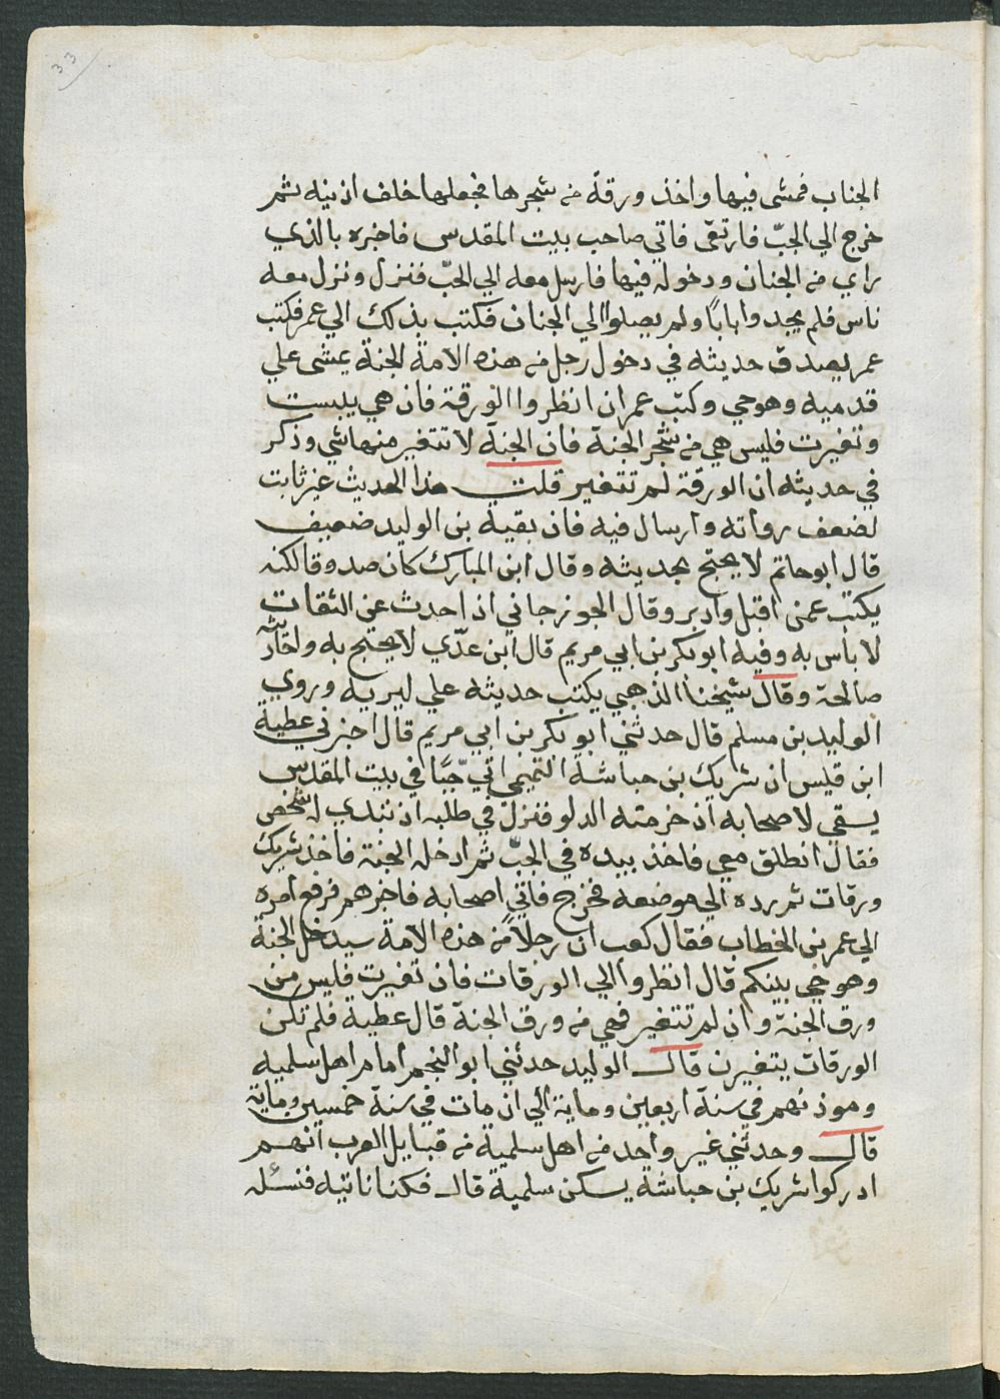 33
الجناب فمشى فيها واخذ ورقة من شجرها فجعلها خلف اذنيه ثم
خرج الي الجبّ فارتقى فاتي صاحب بيت المقدس فاخبره بالذي
راي من الجنان ودخوله فيها فارسل معه الي الجبّ فنزل ونزل معه
ناس فلم يجدوا باباً ولم يصلوا الي الجنان فكتب بذلك الي عمر فكتب
عمر يصدق حديثه في دخول رجل من هذه الامة الجنة يمشي علي
قدميه وهو حي وكتب عمر ان انظروا الورقة فان هي يبست
وتغيرت فليس هي من شجر الجنة فان الجنة لا تتغير منها شي وذكر
في حديثه ان الورقة لم تتغير قلت هذا الحديث غير ثابت
لضعف رواته وارسال فيه فان بقية بن الوليد ضعيف
قال ابو حاتم لا يحتج بحديثه وقال ابن المبارك كان صدوقا لكنه
يكتب عمن اقبل وادبر وقال الجوزجاني اذا حدث عن الثقات
لا باس به وفيه ابو بكر بن ابي مريم قال ابن عدّي لا يحتج به واحاديثه
صالحة وقال شيخنا الذهبي يكتب حديثه علي لين به وروي
الوليد بن مسلم قال حدثني ابو بكر بن ابي مريم قال اخبرني عطية
ابن قيس ان شريك بن حباشة التميمي اتي جبًّا في بيت المقدس
يسقي لاصحابه اذ خرمته الدلو فنزل في طلبه اذ تبدي له شخص
فقال انطلق معي فاخذ بيده في الجبّ ثم ادخله الجنة فاخذ شريك
ورقات ثم رده الي موضعه فخرج فاتي اصحابه فاخبرهم فرفع امره
الي عمر بن الخطاب فقال كعب ان رجلاً من هذه الامة سيدخل الجنة
وهو حي بينكم قال انظروا الي الورقات فان تغيرت فليس من
ورق الجنة وان لم تتغير فهي من ورق الجنة قال عطية فلم تكن
الورقات يتغيرن قال الوليد حدثني ابو النجم امام اهل سلمية
وموذنهم في سنة اربعين وماية الي ان مات في سنة خمسين وماية
قال وحدثني غير واحد من اهل سلمية من قبايل العرب انهم
ادركوا شريك بن حباشة يسكن سلمية قال فكنا ناتيه فنسئله